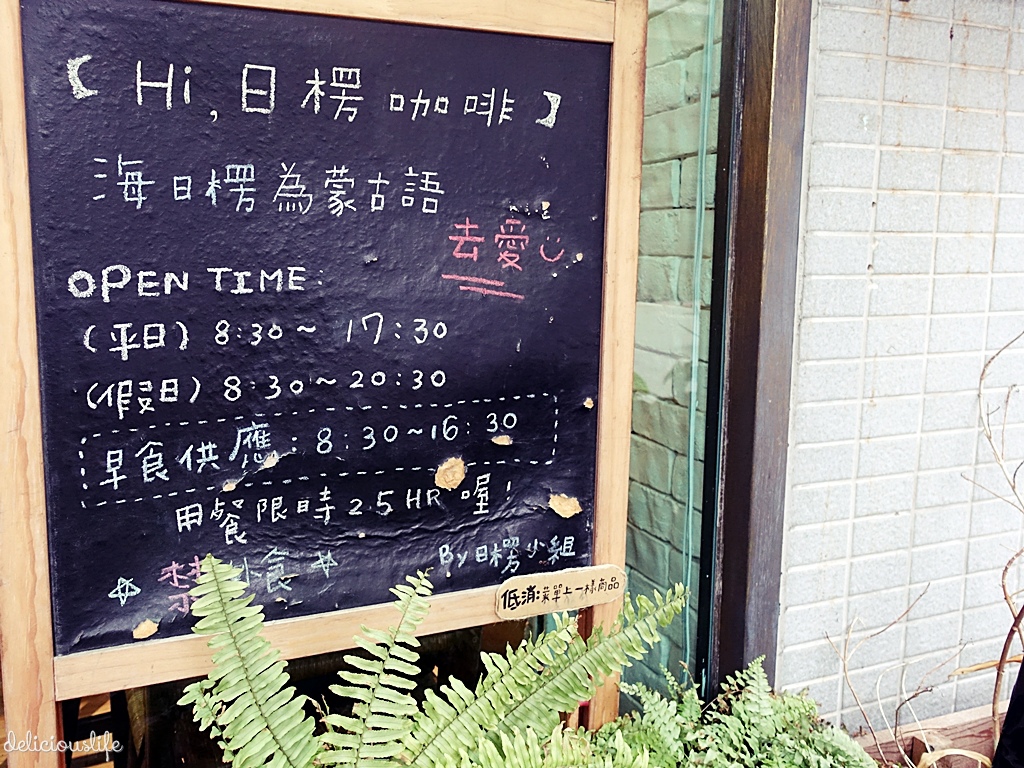 【Hi,日楞咖啡】
海日楞為蒙古語
去愛
OPEN TIME:
(平日) 8:30~ 17:30
(假日) 8:30~20:30
早食供應: 8:30~16:30
用餐限時 2.5HR 喔!
禁外食
By 日楞小組
低消:菜單上一樣商品
deliciouslife